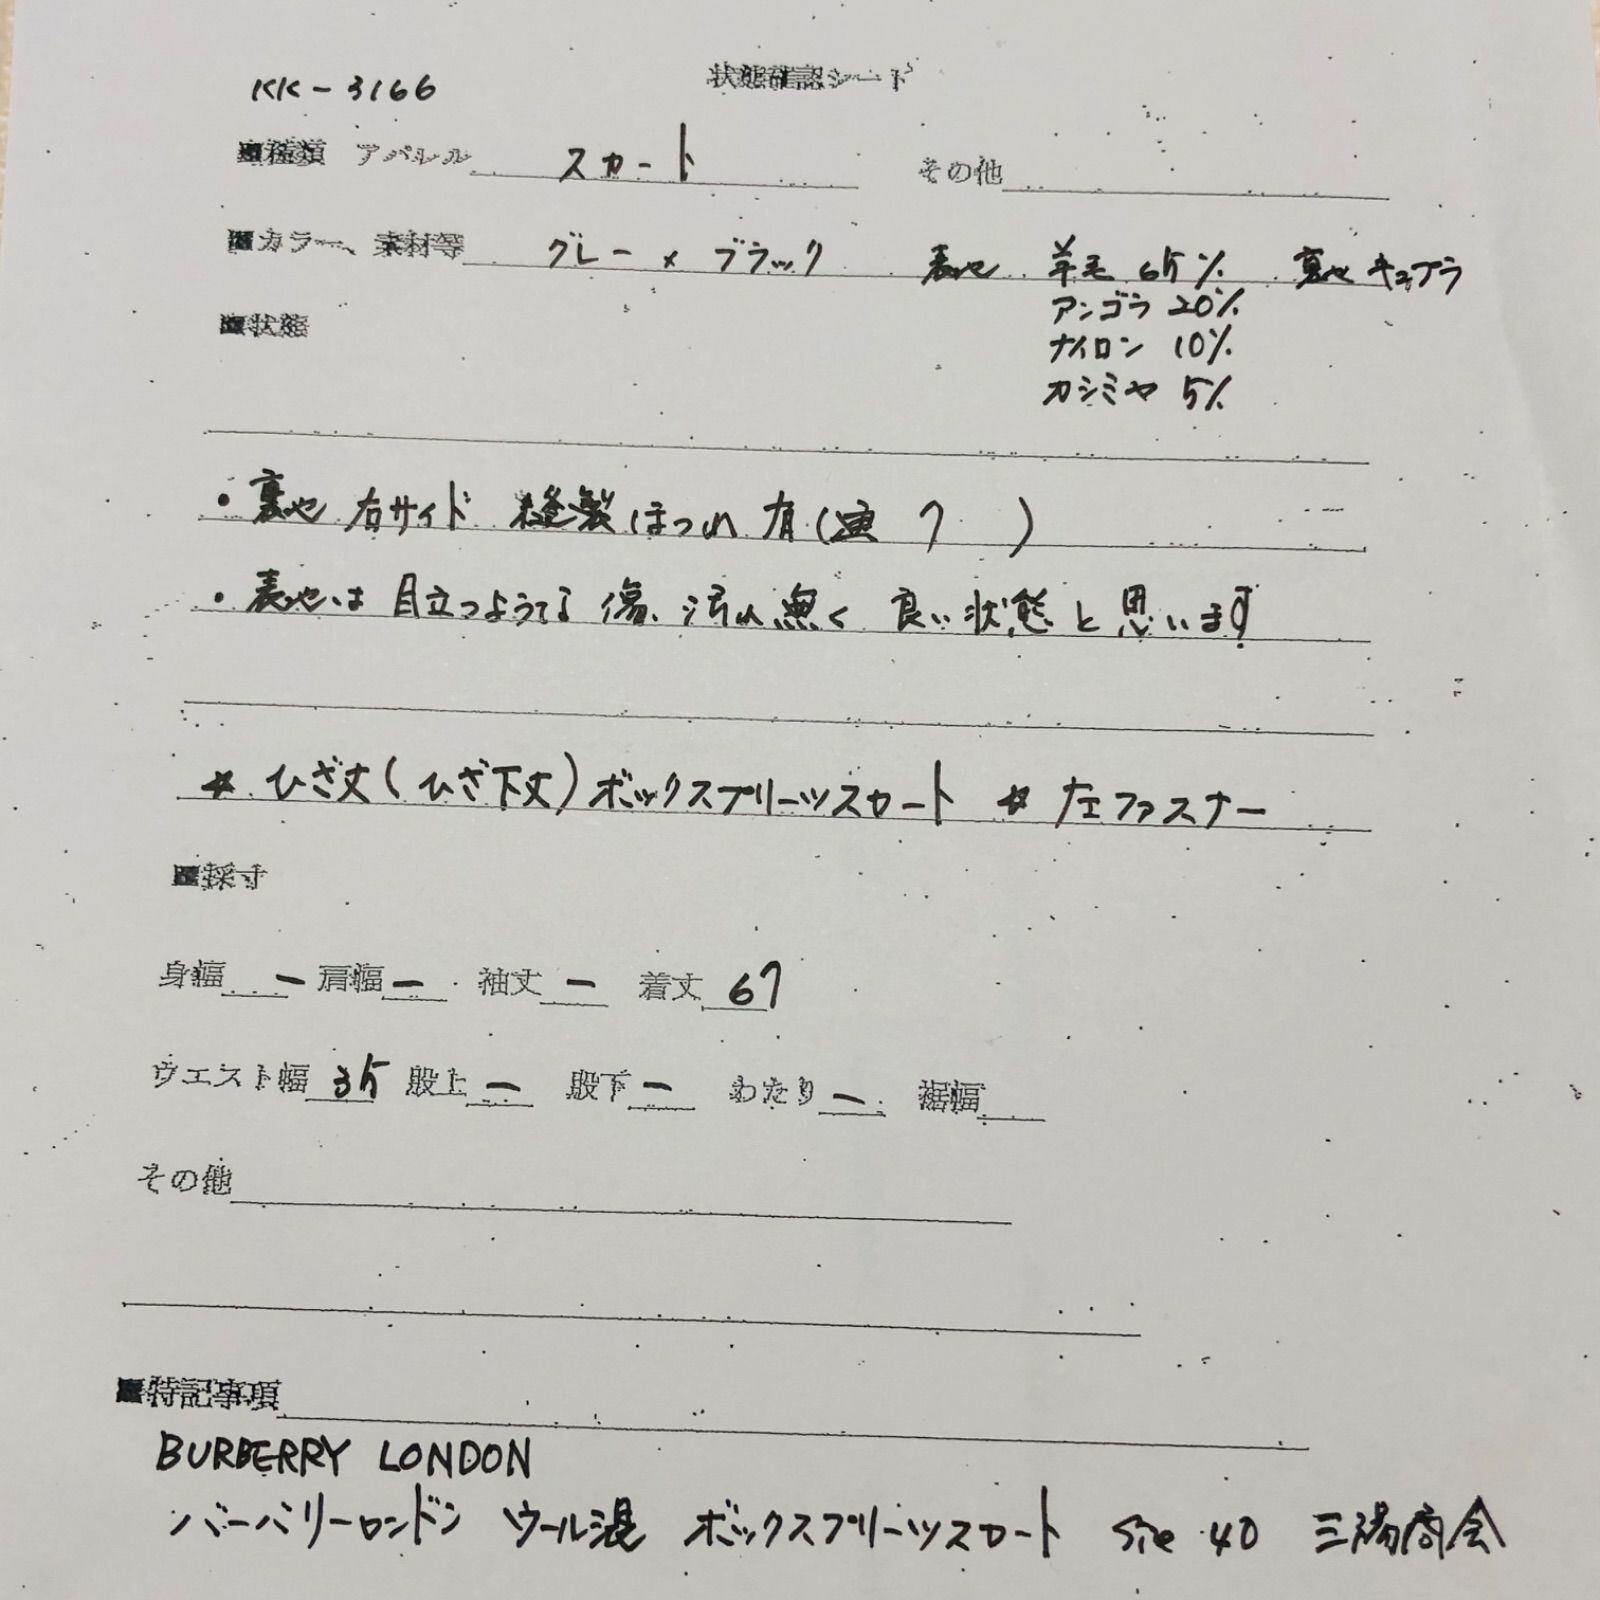 KK-3166
状態確認シート
■種類 アパレル スカート その他
■カラー、素材等 グレー × ブラック 表地 羊毛 65% 裏地 キュプラ
アンゴラ 20%
ナイロン 10%
カシミヤ 5%
■状態
・裏地 右サイド 縫製ほつれ 有(画 7 )
・表地は 目立つような 傷、汚れ無く 良い状態と思います
* ひざ丈(ひざ下丈)ボックスプリーツスカート * 左ファスナー
■採寸
身幅 ー 肩幅 ー 袖丈 ー 着丈 67
ウエスト幅 35 股上 ー 股下 ー わたり ー 裾幅
その他
■特記事項
BURBERRY LONDON
バーバリーロンドン ウール混 ボックスプリーツスカート Size 40 三陽商会